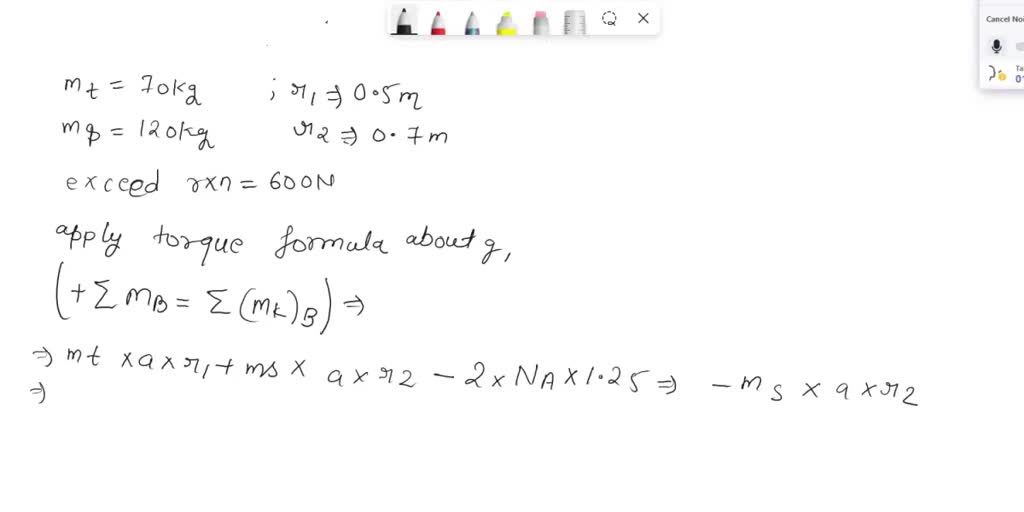 Cancel Noi
Ta
01
mt = 70kg ; r1 ⇒ 0.5m
mp = 120kg r2 ⇒ 0.7m
exceed rxn = 600N
apply torque formula about g,
(+ Σ MB = Σ (Mk)B) ⇒
⇒ mt × a × r1 + ms × a × r2 - 2 × NA × 1.25 ⇒ - ms × a × r2
⇒